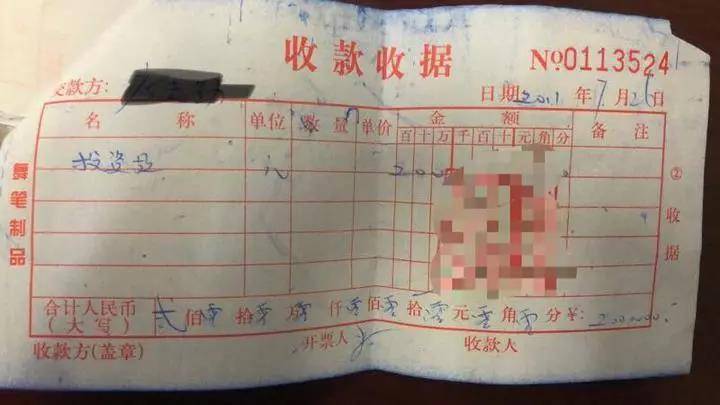 收款收据 №0113524
交款方: 日期2011年7月26日
名称 单位 数量 单价 金额 备注
百 十 万 千 百 十 元 角 分
投资款 元 2000
合计人民币(大写) 贰佰零拾零万零仟零佰零拾零元零角零分 ¥: 200000.
收款方(盖章) 开票人 收款人
舞笔制品
②收据